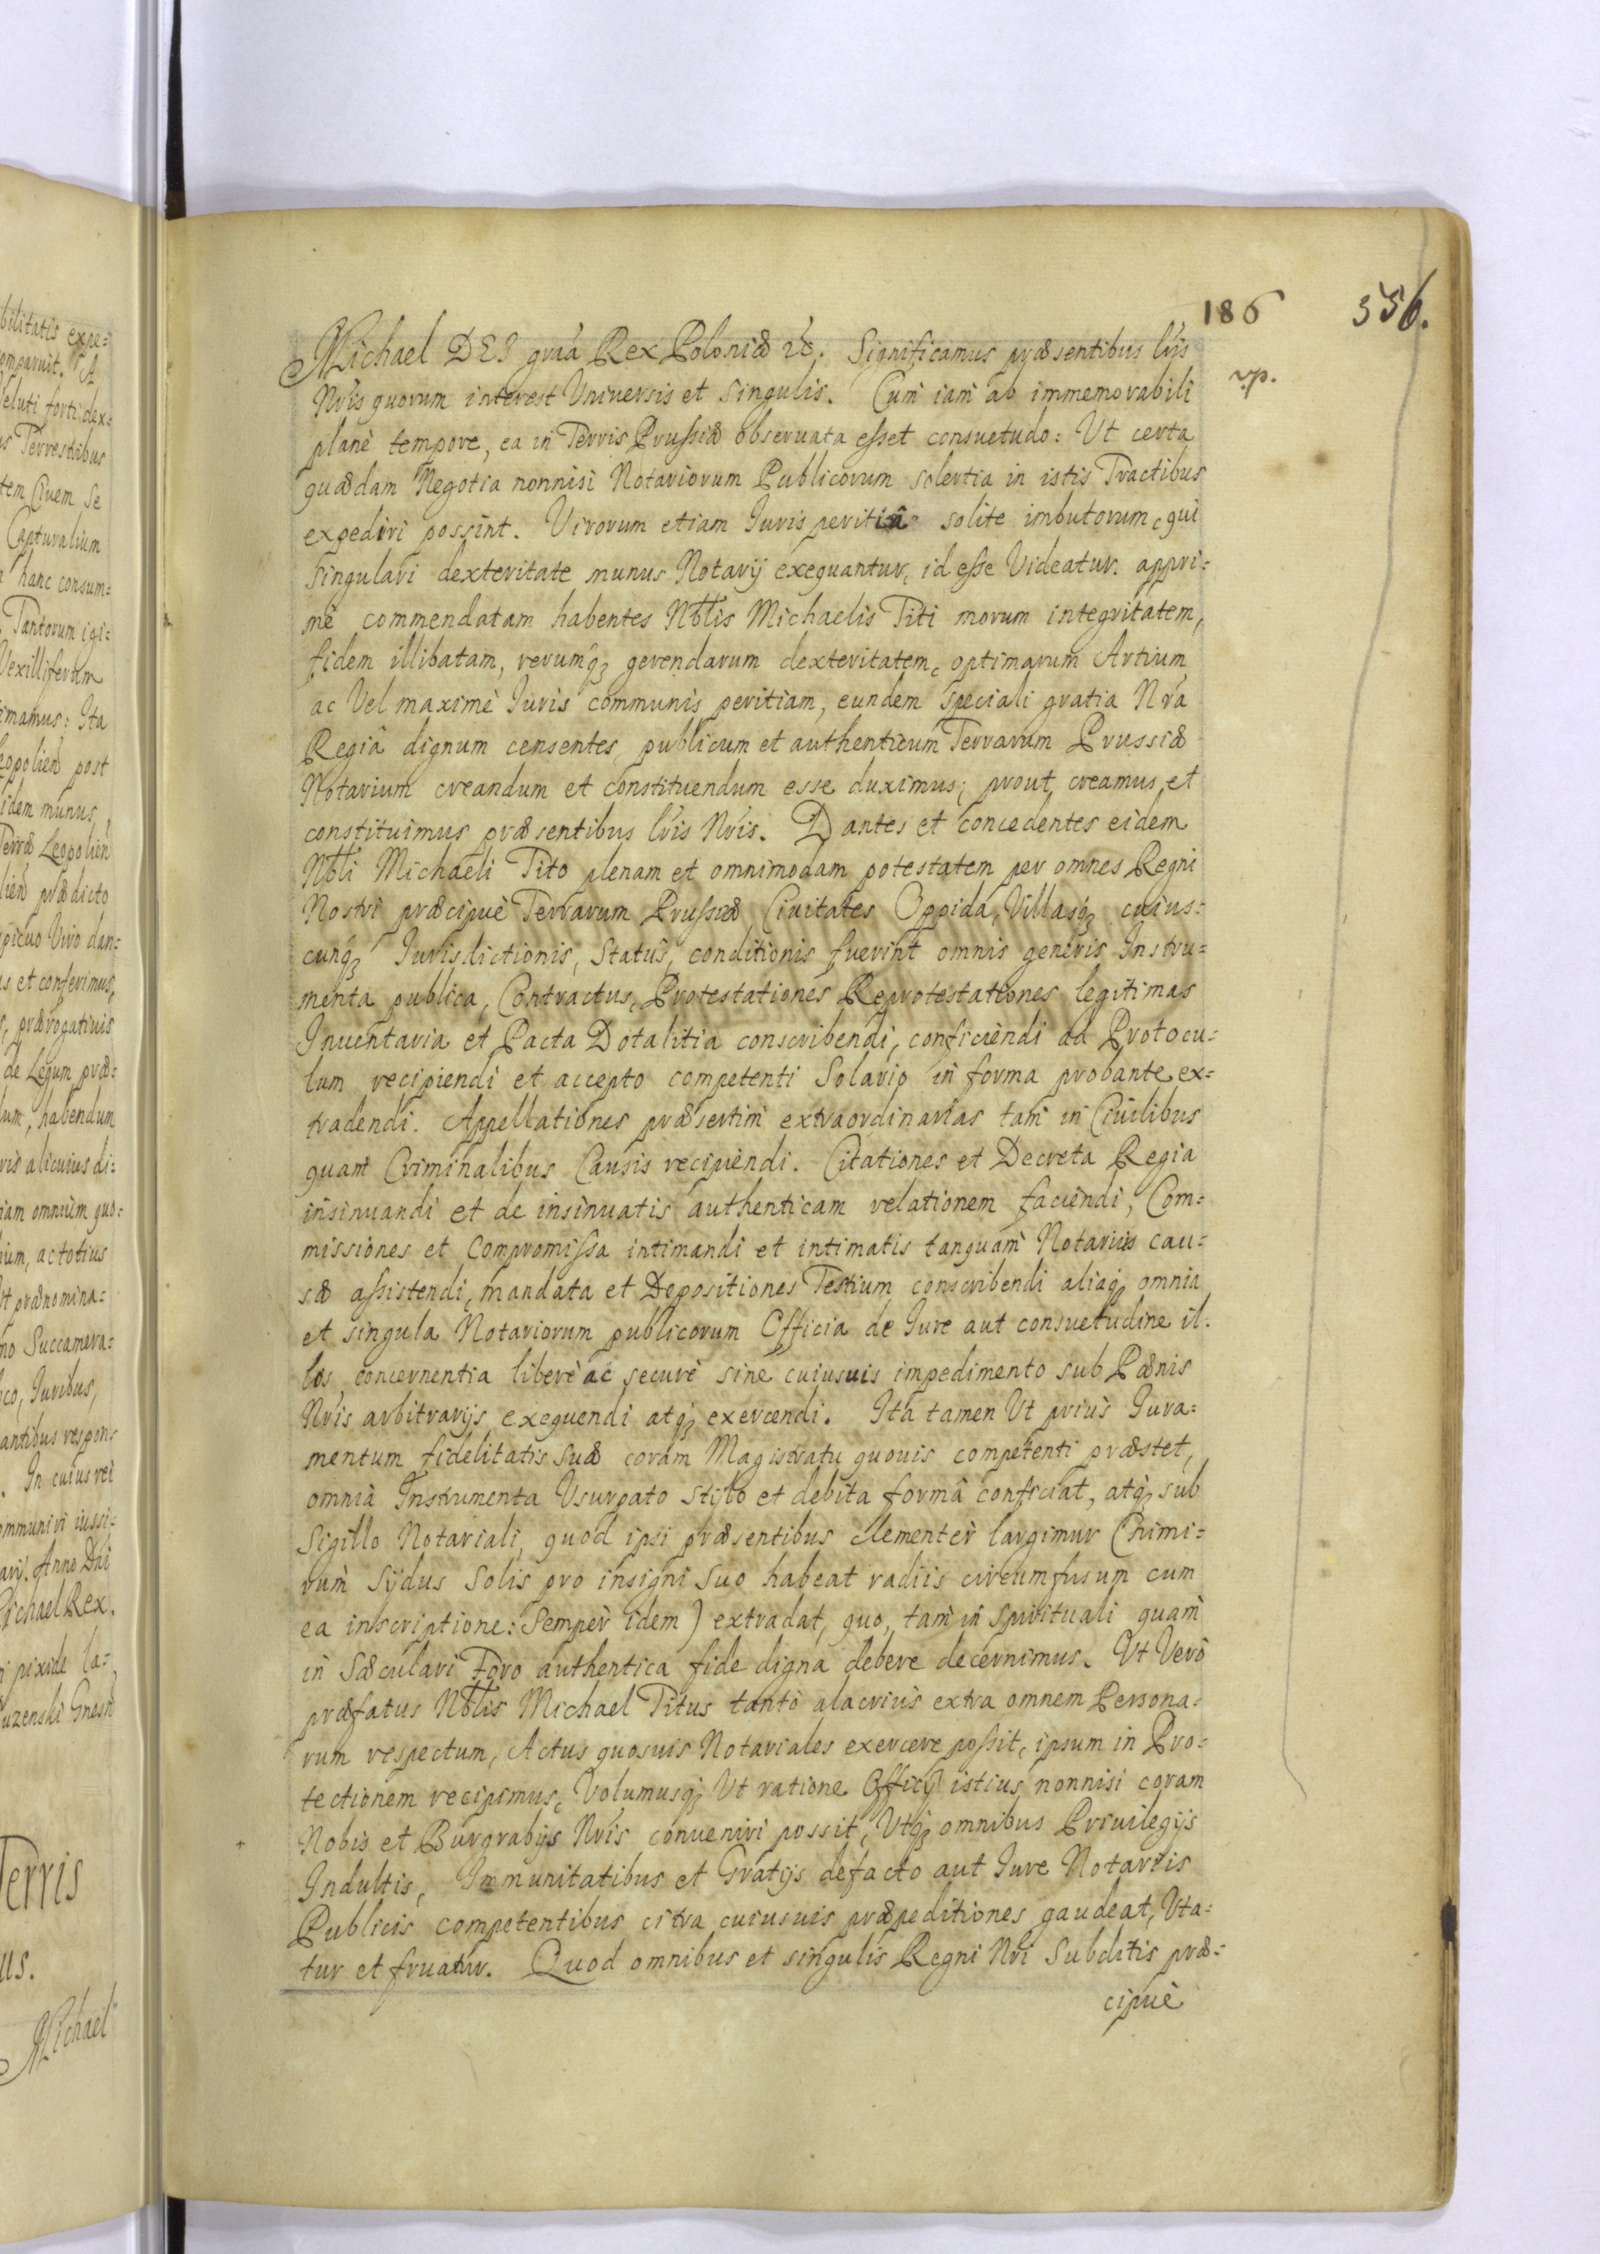 186
556.
Michael DEI gra͞a Rex Poloniæ &c. Significamus præsentibus l͞ris
vp.
N͞ris quorum interest Universis et singulis. Cum iam ab immemorabili
planè tempore, ea in Terris Prussiæ observata esset consuetudo: Ut certa
quædam Negotia nonnisi Notariorum Publicorum solertia in istis Tractibus
expediri possint. Virorum etiam Iuris peritiâ solite imbutorum, qui
singulari dexteritate munus Notarij exequantur, id esse Videatur. appri=
mè commendatam habentes Nbtlis Michaelis Titi morum integritatem,
fidem illibatam, rerumq; gerendarum dexteritatem, optimarum Artium
ac Vel maximè Iuris communis peritiam, eundem speciali gratia N͞ra
Regiâ dignum censentes, publicum et authenticum Terrarum Prussiæ
Notarium creandum et constituendum esse duximus; prout creamus et
constituimus præsentibus l͞ris N͞ris. Dantes et concedentes eidem
Nbtli Michaeli Tito plenam et omnimodam potestatem per omnes Regni
Nostri præcipuè Terrarum Prussiæ Civitates Oppida, Villasq; cuius=
cunq; Iurisdictionis, Status, conditionis fuerint omnis generis Instru=
menta publica, Contractus, Protestationes Reprotestationes legitimas
Inventaria et Pacta Dotalitia conscribendi, conficiendi ad Protocu=
lum recipiendi et accepto competenti Solario in forma probante ex=
tradendi. Appellationes præsertim extraordinarias tam in Civilibus
quam Criminalibus Causis recipiendi. Citationes et Decreta Regia
insinuandi et de insinuatis authenticam relationem faciendi, Com=
missiones et Compromissa intimandi et intimatis tanquam Notarius cau=
sæ assistendi, mandata et Depositiones Testium conscribendi aliaq; omnia
et singula Notariorum publicorum Officia de Iure aut consuetudine il=
los concernentia liberè ac securè sine cuiusuis impedimento sub Pænis
N͞ris arbitrarijs exequendi atq; exercendi. Ita tamen Ut prius Iura=
mentum fidelitatis suæ coram Magistratu quouis competenti præstet,
omnia Instrumenta Usurpato stylo et debita formâ conficiat, atq; sub
Sigillo Notariali, quod ipsi præsentibus clementer largimur (nimi=
rum Sydus Solis pro insigni suo habeat radiis circumfusum cum
ea inscriptione: Semper idem) extradat, quo, tam in spirituali quam
in Sæculari Foro authentica fide digna debere decernimus. Ut Verò
præfatus Nbtlis Michael Titus tantò alacrius extra omnem Persona=
rum respectum, Actus quosuis Notariales exercere possit, ipsum in Pro=
tectionem recipimus, Volumusq; Ut ratione Officij istius nonnisi coram
Nobis et Burgrabijs N͞ris conveniri possit, Utq; omnibus Privilegijs
Indultis, Immunitatibus et Gratijs defacto aut Iure Notariis
Publicis competentibus citra cuiusuis præpeditiones gaudeat, Uta=
tur et fruatur. Quod omnibus et singulis Regni N͞ri Subditis præ=
cipuè